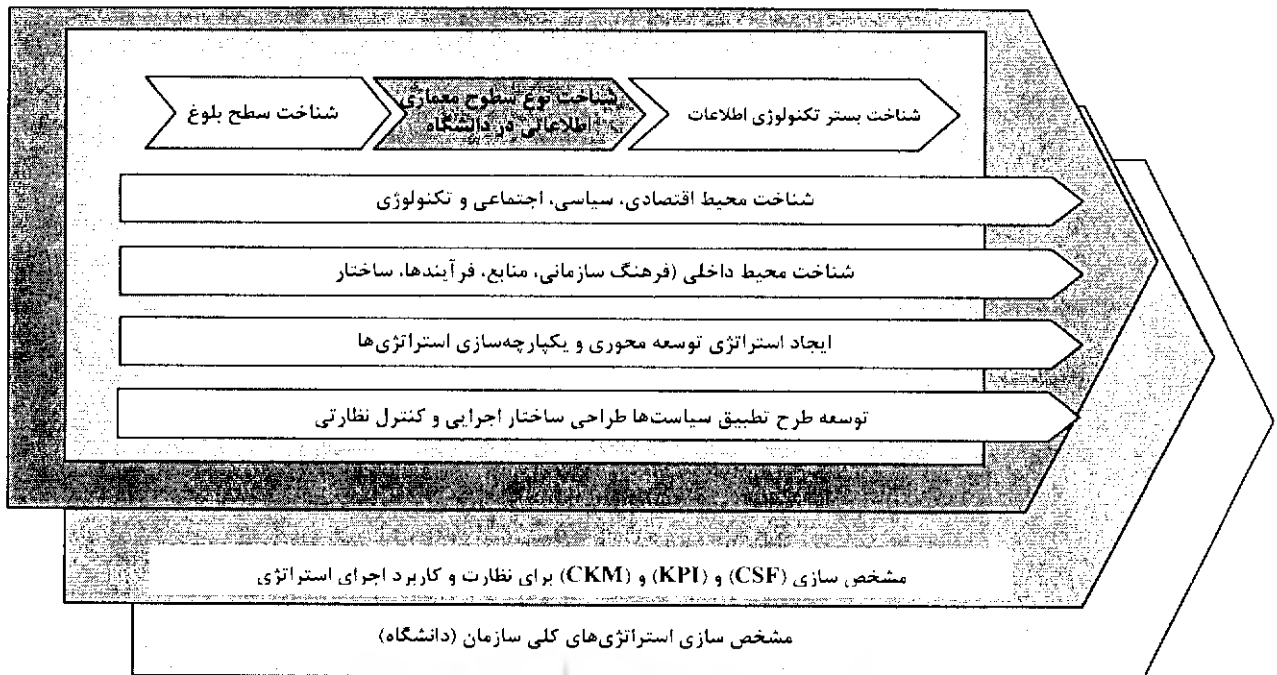 شناخت سطح بلوغ
شناخت نوع سطوح معماری
اطلاعاتی در دانشگاه
شناخت بستر تکنولوژی اطلاعات
شناخت محیط اقتصادی، سیاسی، اجتماعی و تکنولوژی
شناخت محیط داخلی (فرهنگ سازمانی، منابع، فرآیندها، ساختار
ایجاد استراتژی توسعه محوری و یکپارچه‌سازی استراتژی‌ها
توسعه طرح تطبیق سیاست‌ها طراحی ساختار اجرایی و کنترل نظارتی
مشخص سازی (CSF) و (KPI) و (CKM) برای نظارت و کاربرد اجرای استراتژی
مشخص سازی استراتژی‌های کلی سازمان (دانشگاه)